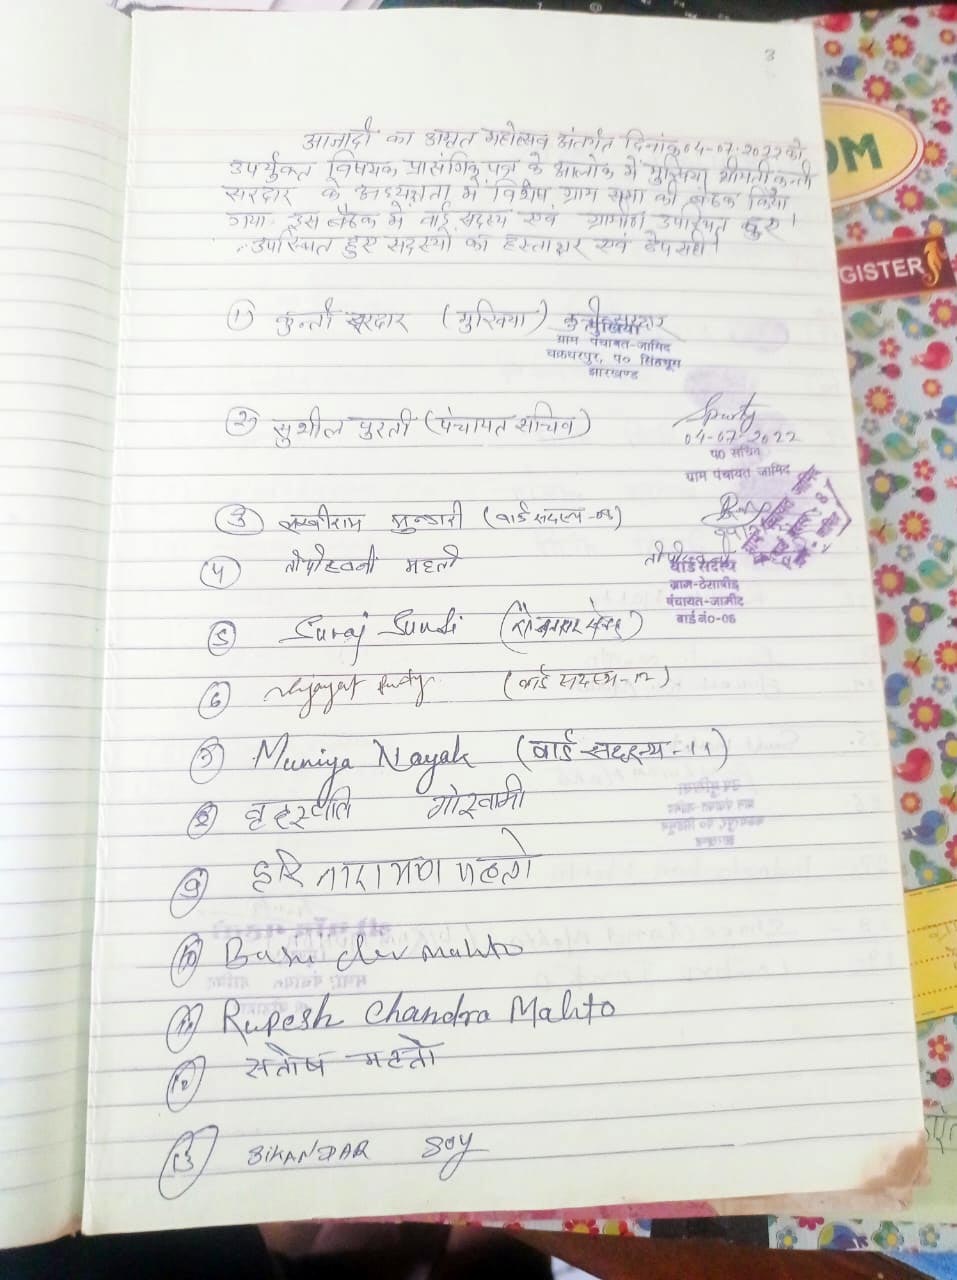 3
आजादी का अमृत महोत्सव अंतर्गत दिनांक 04-07-2022 को
उपर्युक्त विषयक प्रासंगिक पत्र के आलोक में मुखिया श्रीमती कुन्ती
सरदार के अध्यक्षता में विशेष ग्राम सभा की बैठक किया
गया। इस बैठक में वार्ड सदस्य एवं ग्रामीण उपस्थित हुए।
उपस्थित हुए सदस्यों का हस्ताक्षर एवं
① कुन्ती सरदार (मुखिया)
मुखिया
ग्राम पंचायत-जामिद
चक्रधरपुर, प० सिंहभूम
झारखण्ड
② सुशील पुरती (पंचायत सचिव)
04-07-2022
पं० सचिव
ग्राम पंचायत जामिद
③ मुन्डारी (वार्ड सदस्य-08)
④ महतो
वार्ड सदस्य
पंचायत-जामीद
वार्ड नं०-06
⑤ Suraj Sundi
⑥ (वार्ड सदस्य-12)
⑦ Muniya Nayak (वार्ड सदस्य-11)
⑧ वृहस्पति गोस्वामी
⑨ हरि नारायण महतो
⑩ Basu dev mahto
⑪ Rupesh Chandra Mahto
⑫ संतोष महतो
⑬ SIKANDAR SOY
OM
GISTER